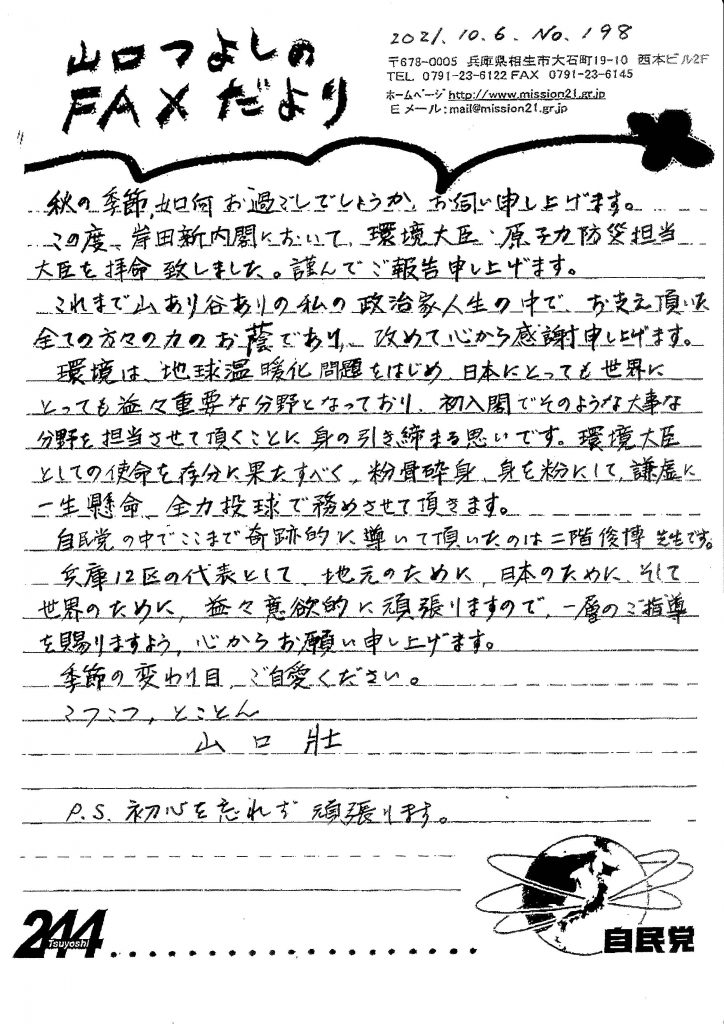 山口つよしの
FAXだより
2021.10.6. No.198
〒678-0005 兵庫県相生市大石町19-10 西本ビル2F
TEL 0791-23-6122 FAX 0791-23-6145
ホームページ http://www.mission21.gr.jp
Eメール:mail@mission21.gr.jp
秋の季節、如何お過ごしでしょうか、お伺い申し上げます。
この度、岸田新内閣において、環境大臣・原子力防災担当
大臣を拝命致しました。謹んでご報告申し上げます。
これまで山あり谷ありの私の政治家人生の中で、お支え頂いた
全ての方々の力のお蔭であり、改めて心から感謝申し上げます。
環境は、地球温暖化問題をはじめ、日本にとっても世界に
とっても益々重要な分野となっており、初入閣でそのような大事な
分野を担当させて頂くことに身の引き締まる思いです。環境大臣
としての使命を存分に果たすべく、粉骨砕身、身を粉にして、謙虚に
一生懸命、全力投球で務めさせて頂きます。
自民党の中でここまで奇跡的に導いて頂いたのは二階俊博先生です。
兵庫12区の代表として、地元のために、日本のために、そして
世界のために、益々意欲的に頑張りますので、一層のご指導
を賜りますよう、心からお願い申し上げます。
季節の変わり目、ご自愛ください。
こつこつ、とことん
山口 壯
P.S. 初心を忘れず頑張ります。
244
Tsuyoshi
自民党